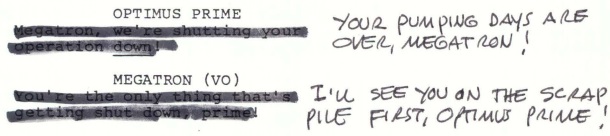 OPTIMUS PRIME
Megatron, we're shutting your
operation down!
YOUR PUMPING DAYS ARE
OVER, MEGATRON!
MEGATRON (VO)
You're the only thing that's
getting shut down, prime!
I'LL SEE YOU ON THE SCRAP
PILE FIRST, OPTIMUS PRIME!